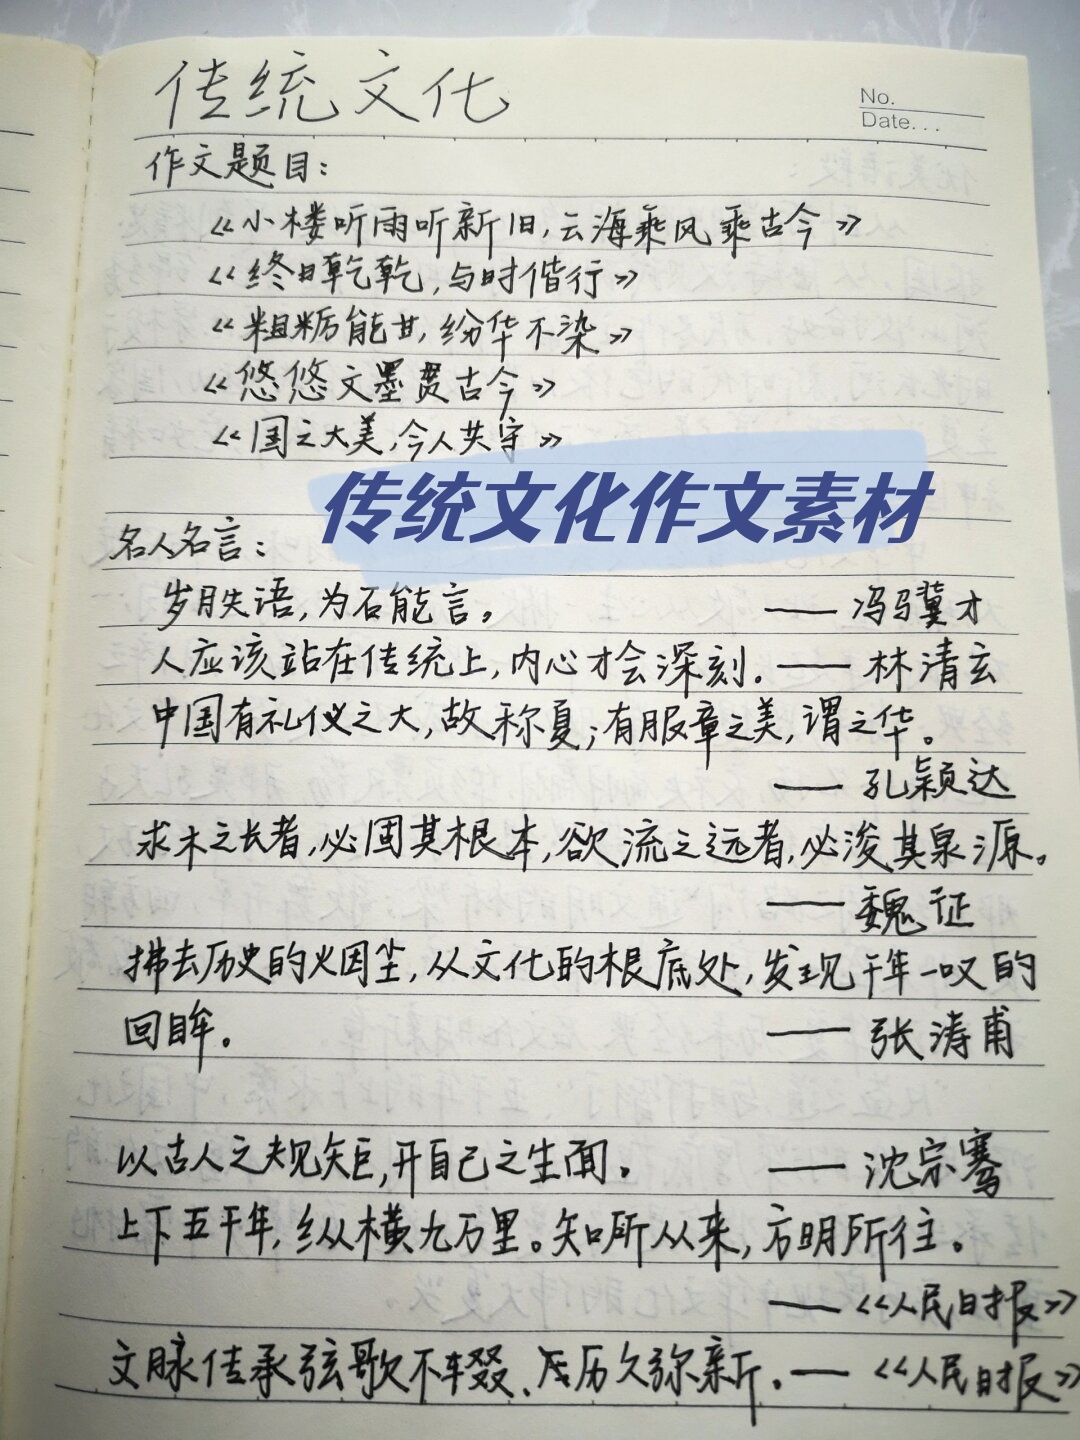 传统文化
No.
Date...
作文题目：
《小楼听雨听新旧，云海乘风乘古今》
《终日乾乾，与时偕行》
《粗粝能甘，纷华不染》
《悠悠文墨贯古今》
《国之大美，今人共守》
传统文化作文素材
名人名言：
岁月失语，为石能言。 —— 冯骥才
人应该站在传统上，内心才会深刻。—— 林清玄
中国有礼仪之大，故称夏；有服章之美，谓之华。
—— 孔颖达
求木之长者，必固其根本，欲流之远者，必浚其泉源。
—— 魏征
拂去历史的火因尘，从文化的根底处，发现千年一叹的
回眸。 —— 张涛甫
以古人之规矩，开自己之生面。 —— 沈宗骞
上下五千年，纵横九万里。知所从来，方明所往。
—— 《人民日报》
文脉传承弦歌不辍、历久弥新。—— 《人民日报》